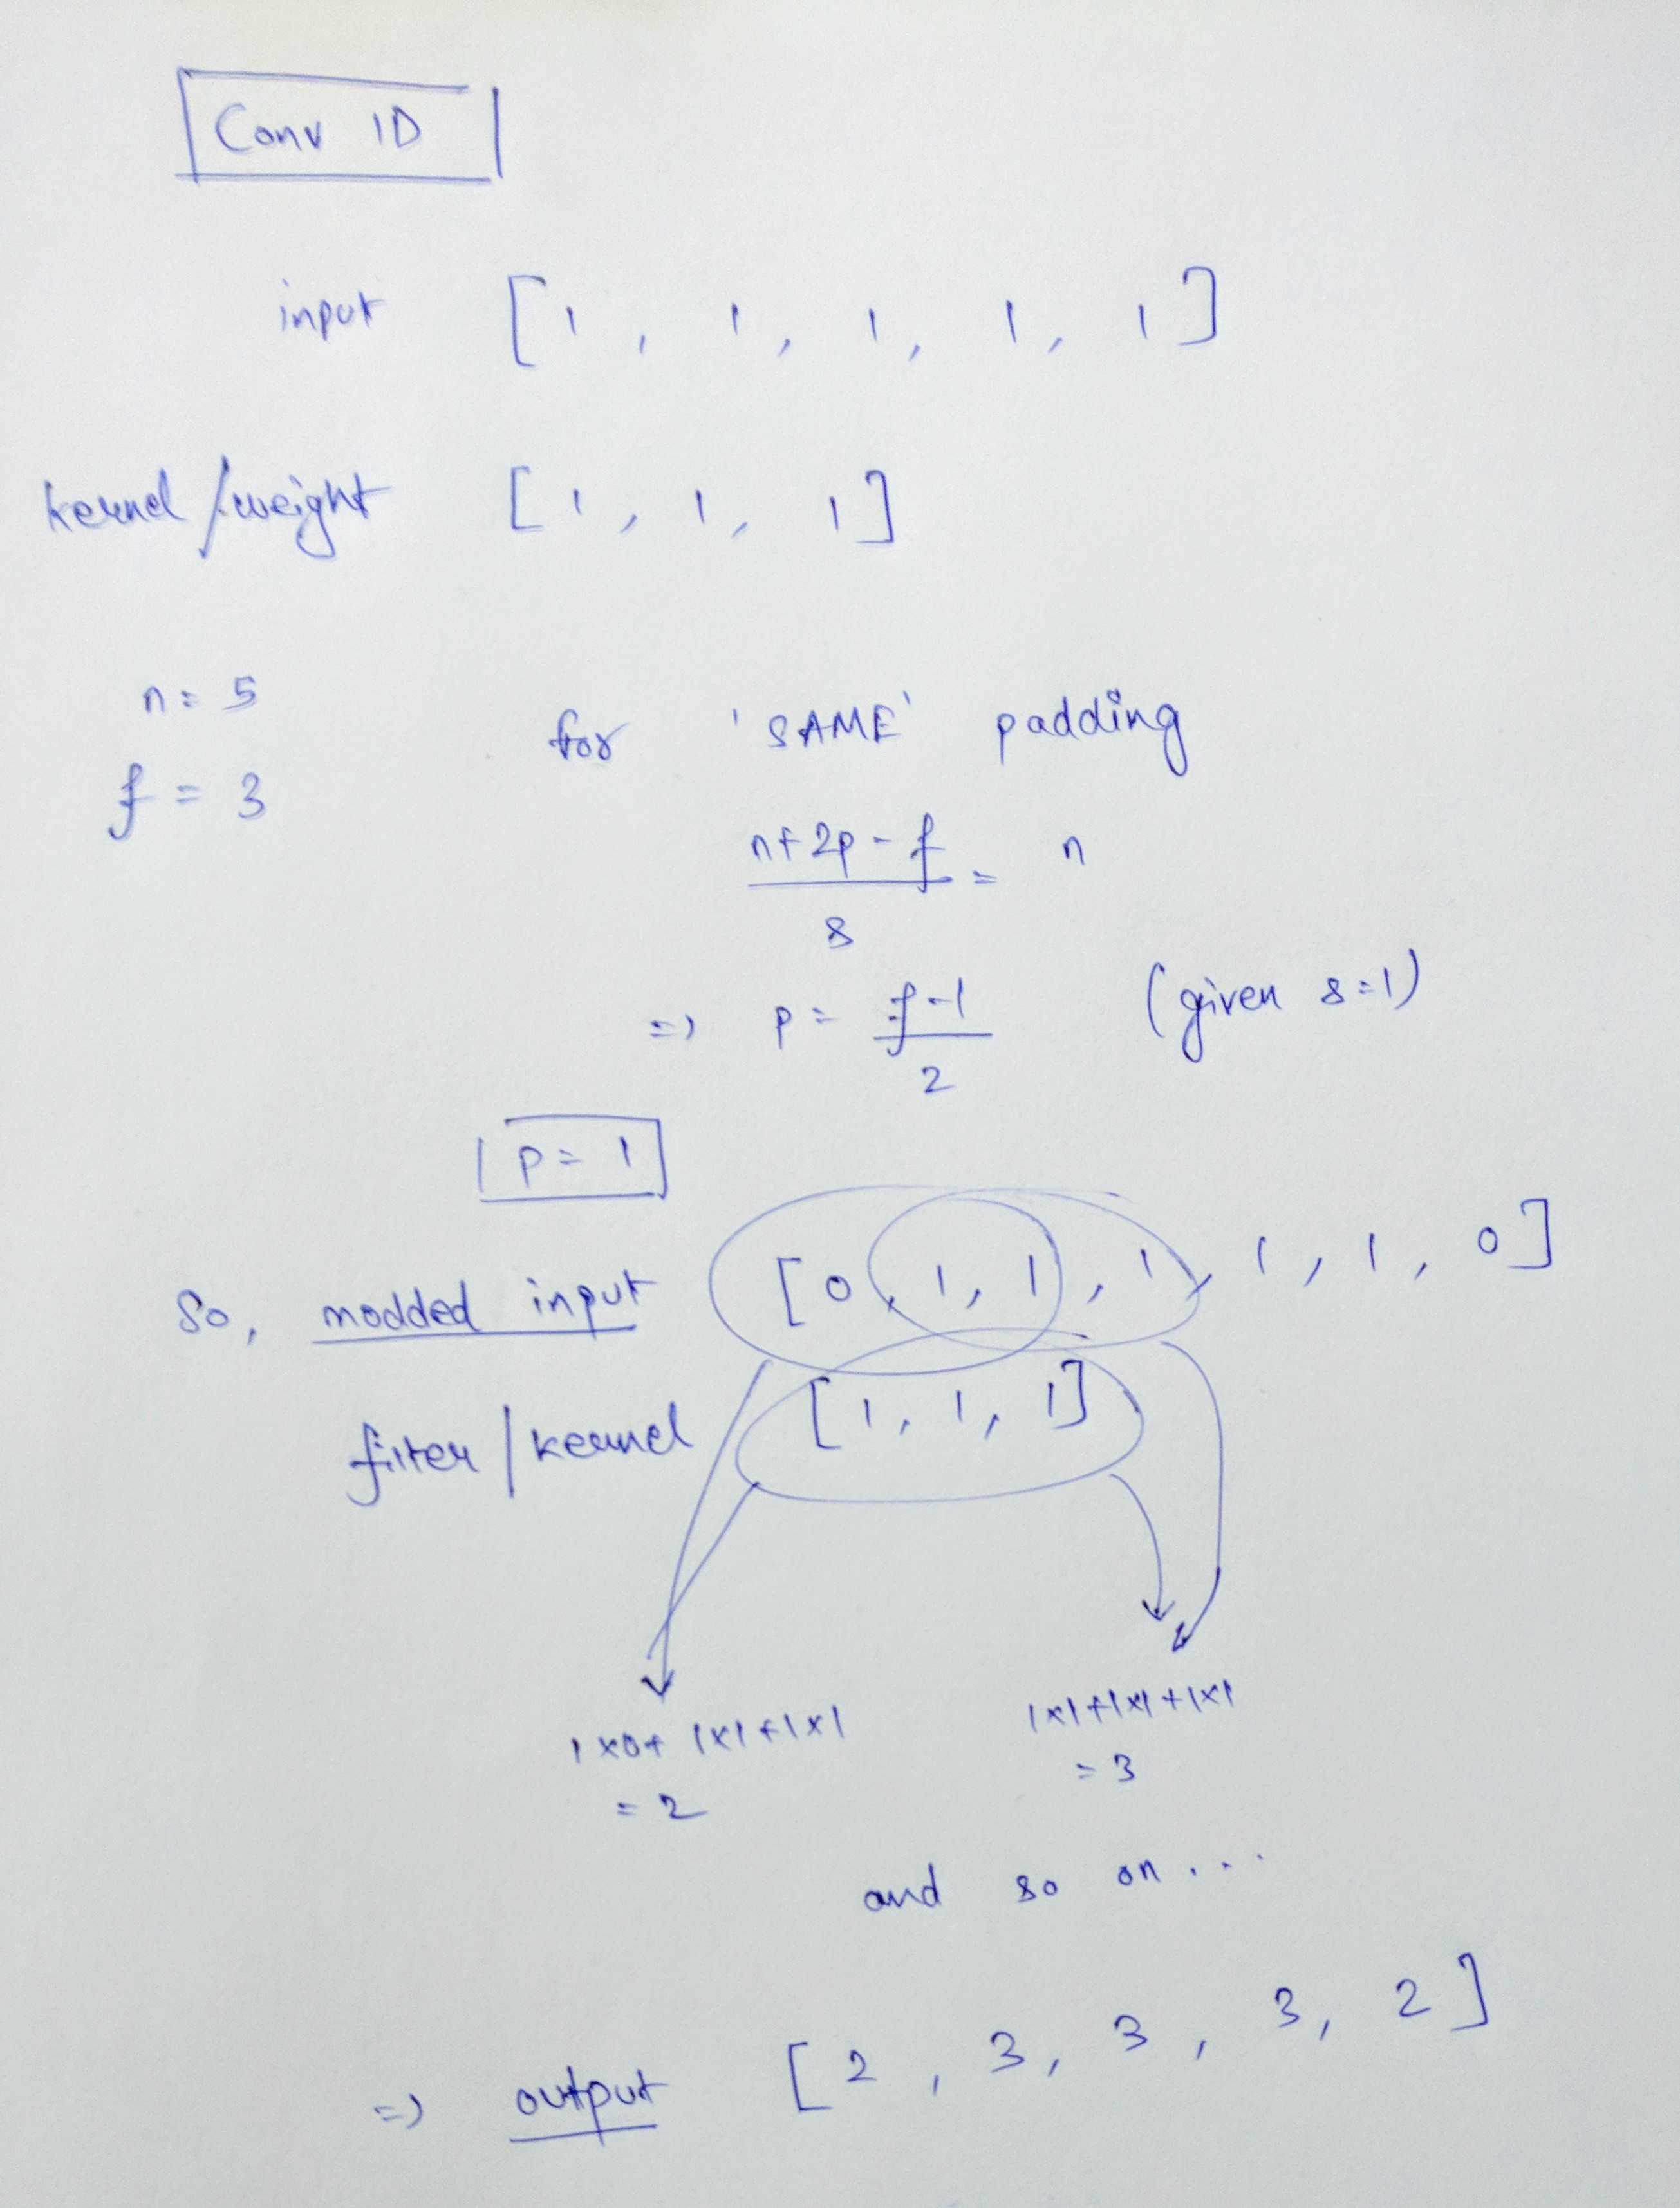 Conv 1D
input [1, 1, 1, 1, 1]
kernel/weight [1, 1, 1]
n = 5
f = 3
for 'SAME' padding
n+2p-f
s
= n
=> p = f-1
2
(given s=1)
p = 1
So, modded input [0, 1, 1, 1, 1, 1, 0]
filter/kernel [1, 1, 1]
1x0+1x1+1x1
= 2
1x1+1x1+1x1
= 3
and so on....
=> output [2, 3, 3, 3, 2]